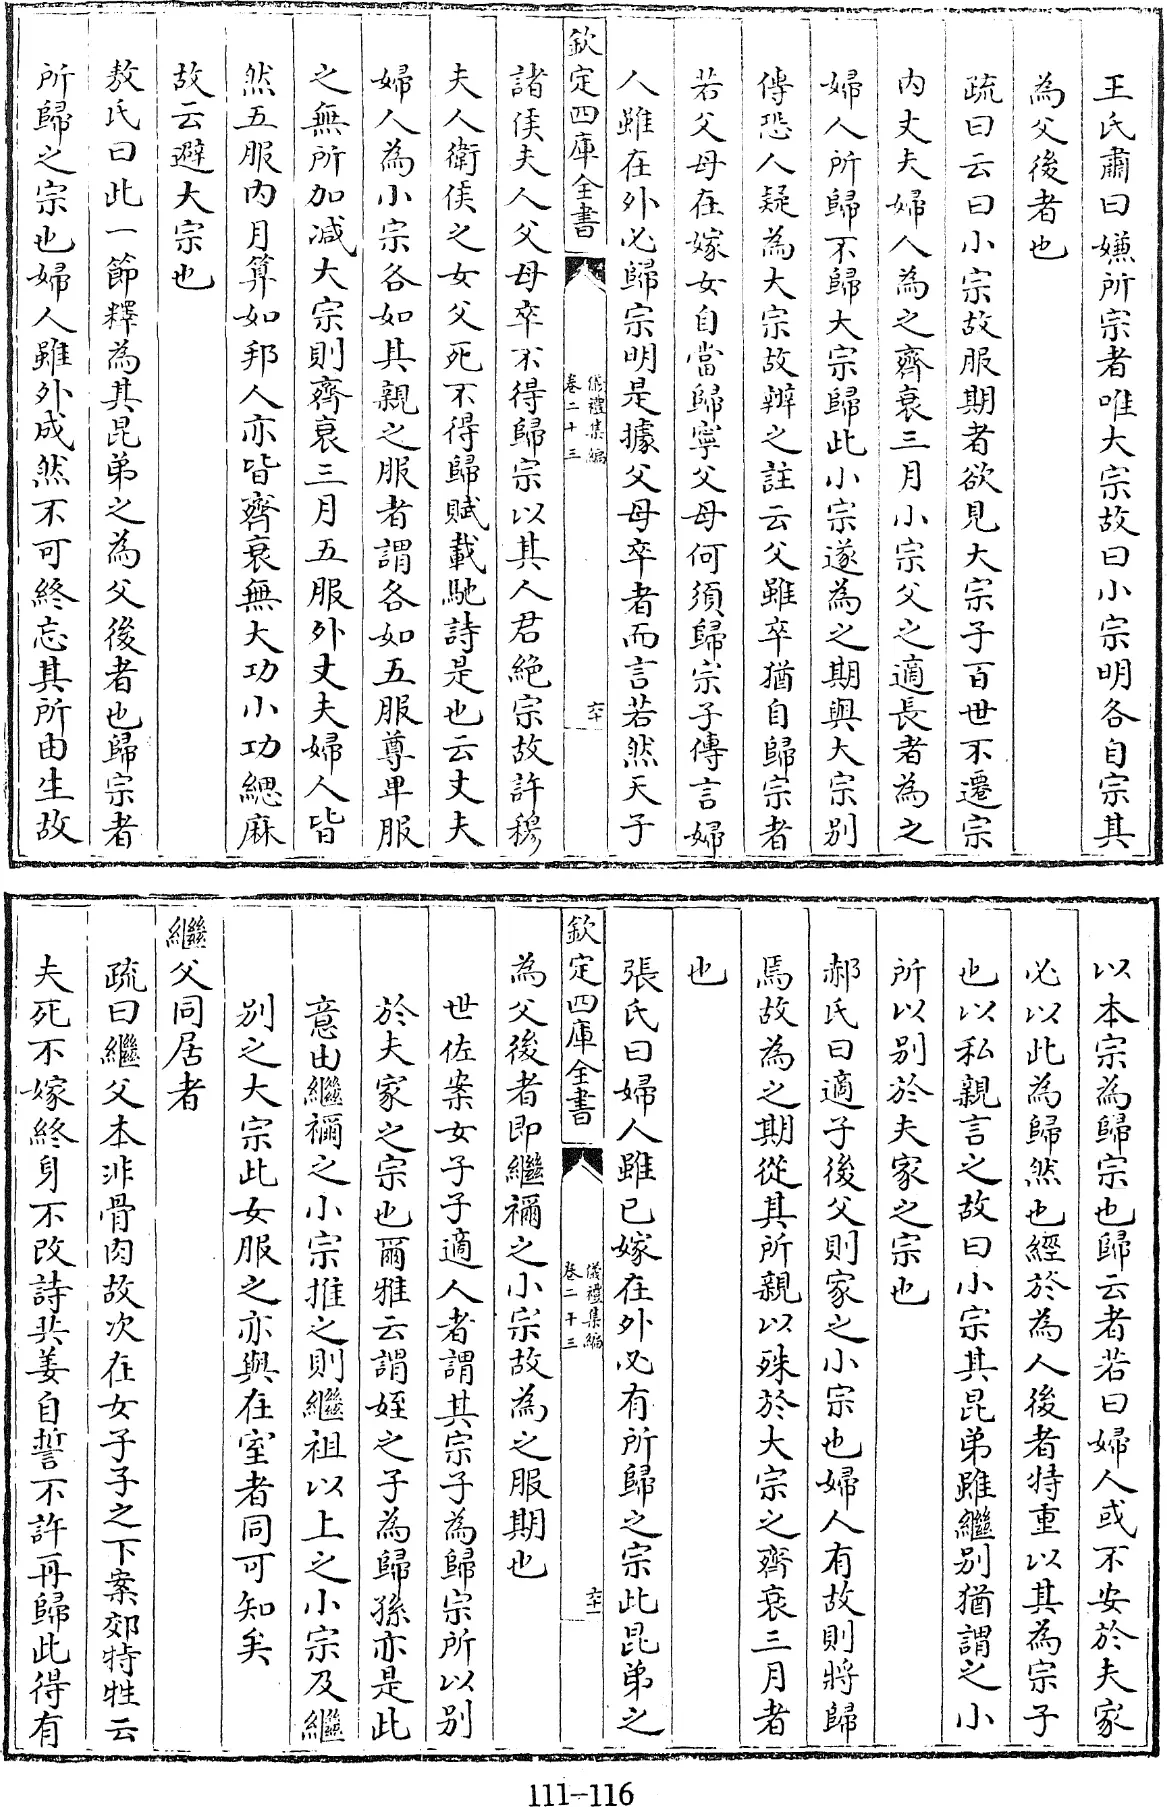 王氏肅曰嫌所宗者唯大宗故曰小宗明各自宗其
為父後者也
疏曰云曰小宗故服期者欲見大宗子百世不遷宗
内丈夫婦人為之齊衰三月小宗父之適長者為之
婦人所歸不歸大宗歸此小宗遂為之期與大宗別
傳恐人疑為大宗故辨之註云父雖卒猶自歸宗者
若父母在嫁女自當歸寧父母何須歸宗子傳言婦
人雖在外必歸宗明是據父母卒者而言若然天子
欽定四庫全書
儀禮集編
卷二十三
六十
諸侯夫人父母卒不得歸宗以其人君絶宗故許穆
夫人衛侯之女父死不得歸賦載馳詩是也云丈夫
婦人為小宗各如其親之服者謂各如五服尊卑服
之無所加減大宗則齊衰三月五服外丈夫婦人皆
然五服内月算如邦人亦皆齊衰無大功小功緦麻
故云避大宗也
敖氏曰此一節釋為其昆弟之為父後者也歸宗者
所歸之宗也婦人雖外成然不可終忘其所由生故
以本宗為歸宗也歸云者若曰婦人或不安於夫家
必以此為歸然也經於為人後者特重以其為宗子
也以私親言之故曰小宗其昆弟雖繼別猶謂之小
所以別於夫家之宗也
郝氏曰適子後父則家之小宗也婦人有故則將歸
焉故為之期從其所親以殊於大宗之齊衰三月者
也
張氏曰婦人雖已嫁在外必有所歸之宗此昆弟之
欽定四庫全書
儀禮集編
卷二十三
六十一
為父後者即繼禰之小宗故為之服期也
世佐案女子子適人者謂其宗子為歸宗所以別
於夫家之宗也爾雅云謂姪之子為歸孫亦是此
意由繼禰之小宗推之則繼祖以上之小宗及繼
別之大宗此女服之亦與在室者同可知矣
繼父同居者
疏曰繼父本非骨肉故次在女子子之下案郊特牲云
夫死不嫁終身不改詩共姜自誓不許再歸此得有
111-116